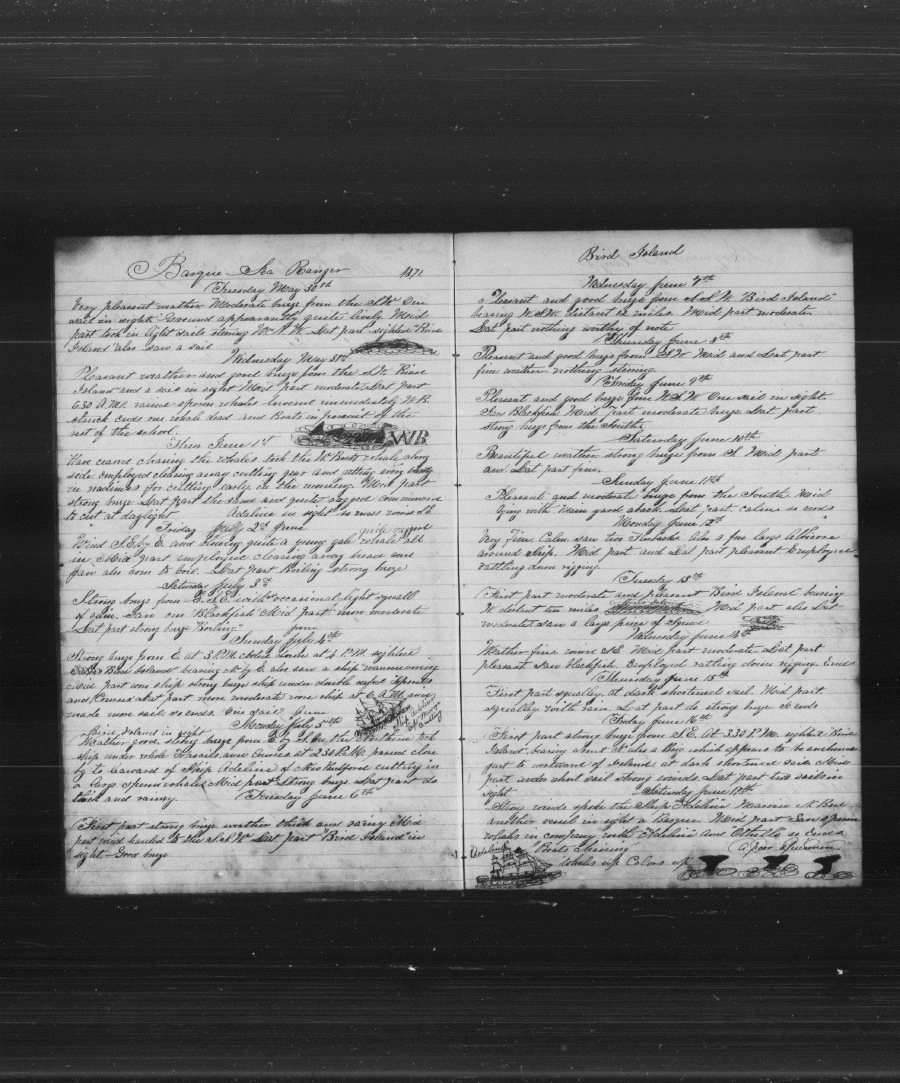 Barque Sea Ranger 1871
Tuesday May 30th
Very pleasant weather Moderate breze from the S.W. One
sail in sight. Ground appearantly quite lively Mid
part took in light sails steering W.N.W. Lat part sighted "Bird
Island" also saw a sail
Wednesday May 31st
Pleasant weather and good breze from the S.W. Bird
Island and a sail in sight Mid part moderate Lat part
6.30 A.M. raised sperm whales lowered immediately W.B.
struck ends one whale dead and Boats in persuit of the
rest of the school.
Thurs June 1st
WB
Have ceased chasing the whales took the W Boats whale along
side employed clearing away cutting gear and getting every thing
in readiness for cutting early in the morning Mid part
strong breze Lat part the same and quite rugged commenced
to cut at daylight Adeline in sight
Friday July 2nd June
Wind S.E. by E. and blowing quite a young gale whale all
in Mid part employed clearing away head and
jaw also began to boil. Lat part Boiling strong breze
Saturday July 3rd
Strong breze from E.S.E. with occasional light squall
of rain. Saw one Blackfish Mid part more moderate
Lat part strong breze "Boiling"
June
Sunday July 4th
Strong breze from E. at 3 P.M. at 4 P.M. sighted
Bird Island bearing N by E also saw a ship manoeuvering
Mid part strong breze under double reeft Topsails
and Lat part more moderate wore ship at 6 A.M. and
made more sail so ends One sail June
Bird Island in sight
Monday July 5th
Weather good strong breze from
ship under whole Topsails and Courses at 2.30 P.M. passed close
by to leward of Ship Adeline of New Bedford cutting in
a large sperm whale Mid part strong breze Lat part do
thick and rainy
Tuesday June 6th
First part strong breze weather thick and rainy Mid
part wind hauled to the S.S.W. Lat part "Bird Island" in
sight Good breze
Bird Island
Wednesday June 7th
Pleasant and good breze from S.S.W. "Bird Island"
bearing W.S.W. distant miles Mid part moderate
Lat part nothing worthy of note
Thursday June 8th
Pleasant and good breze from S.W. Mid and Lat part
fine weather nothing stiring.
Friday June 9th
Pleasant and good breze from W.S.W. One sail in sight.
Saw Blackfish Mid Part moderate breze Lat part
strong breze from the South.
Saturday June 10th
Beautiful weather strong brezes from S. Mid part
and Lat part fine.
Sunday June 11th
Pleasant and moderate breze from the South Mid
lying with Main yard aback Lat part calm so ends
Monday June 12th
Very Fine Calm saw two Finbacks also a few large Albicore
around Ship. Mid part and Lat part pleasant Employed
rattling down rigging
Tuesday 13th
First part moderate and pleasant Bird Island bearing
W distant ten miles Mid part also Lat
moderate saw a large piece of Squid
Wednesday June 14th
Weather fine wind S.E. Mid part moderate Lat part
pleasant saw blackfish. Employed rattling down rigging Ends
Thursday June 15th
First part squally at dark shortened sail. Mid part
squally with rain Lat part do strong breze So ends
Friday June 16th
First part strong breze from S.E. At 3.30 P.M. sighted "Bird
Island" bearing also a Brig which appears to be anchored
just to westward of Island at dark shortened sail Mid
part under short sail strong winds Lat part two sails in
sight
Saturday June 17th
Strong winds spoke the Ship "Adeline"
another vessel in sight a Barque Mid part Saw sperm
whales in company with "Adeline" and Othello so ends
Adeline "Boats Chasing" a poor specimen
Whales up Colors up